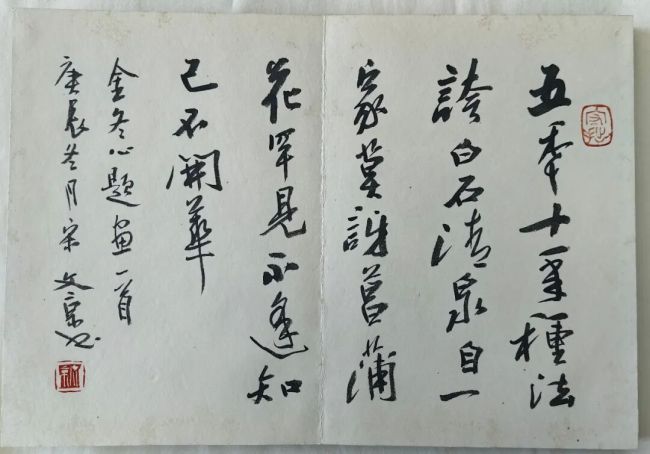 五年十年種法
誇白石清泉自一
家莫訝菖蒲
花罕見不逢知
己不開華
金冬心題畫一首
庚辰月宋文京书
守拙